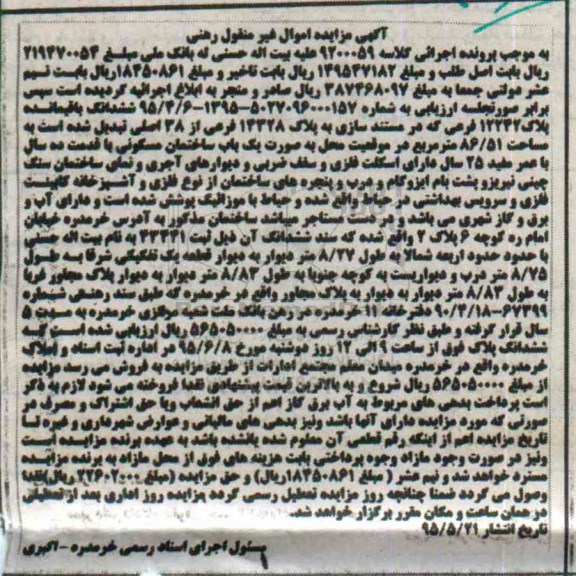 آگهی مزایده اموال غیر منقول رهنی
به موجب پرونده اجرائی کلاسه ۹۲۰۰۰۵۹ علیه بیت اله حسنی له بانک ملی مبلغ ۲۱۹۴۷۰۰۵۴
ریال بابت اصل طلب و مبلغ ۱۴۹۵۳۷۱۸۲ ریال بابت تاخیر و مبلغ ۱۸۳۵۰۸۶۱ ریال بابت نیم
عشر دولتی جمعا به مبلغ ۳۸۷۴۶۸۰۹۷ ریال صادر و منجر به ابلاغ اجرائیه گردیده است سپس
برابر صورتجلسه ارزیابی به شماره ۵۰۲۷۰۹۶۰۰۰۱۵۷-۱۳۹۵-۹۵/۳/۶ ششدانگ باقیمانده
پلاک ۱۲۲۴۲ فرعی که در مستند سازی به پلاک ۱۴۳۲۸ فرعی از ۳۸ اصلی تبدیل شده است به
مساحت ۸۶/۵۱ مترمربع در موقعیت محل به صورت یک باب ساختمان مسکونی با قدمت ده سال
با عمر مفید ۲۵ سال دارای اسکلت فلزی و سقف ضربی و دیوارهای آجری و نمای ساختمان سنگ
چینی نیریز و پشت بام ایزوگام و درب و پنجره های ساختمان از نوع فلزی و آشپزخانه کابینت
فلزی و سرویس بهداشتی در حیاط واقع شده و حیاط با موزائیک پوشش شده است و دارای آب و
برق و گاز شهری می باشد و در دست مستاجر میباشد ساختمان مذکور به آدرس خرمدره خیابان
امام ره کوچه ۶ پلاک ۲ واقع شده که سند ششدانگ آن ذیل ثبت ۳۳۴۲۱ به نام بیت اله حسنی
با حدود حدود اربعه شمالا به طول ۸/۲۷ متر دیوار به دیوار قطعه یک تفکیکی شرقا به طول
۸/۷۵ متر درب و دیواریست به کوچه جنوبا به طول ۸/۸۳ متر دیوار به دیوار پلاک مجاور غربا
به طول ۸/۸۳ متر دیوار به دیوار به پلاک مجاور واقع در خرمدره که طبق سند رهنی شماره
۶۷۳۹۹-۹۰/۳/۱۸ دفترخانه ۱۱ خرمدره در رهن بانک ملت شعبه مرکزی خرمدره به مدت ۵
سال قرار گرفته و طبق نظر کارشناس رسمی به مبلغ ۵۶۵۰۵۰۰۰۰ ریال ارزیابی شده است که
ششدانگ پلاک فوق از ساعت ۹ الی ۱۲ روز دوشنبه مورخ ۹۵/۶/۸ در اداره ثبت اسناد و املاک
خرمدره واقع در خرمدره میدان معلم مجتمع ادارات از طریق مزایده به فروش می رسد مزایده
از مبلغ ۵۶۵۰۵۰۰۰۰ ریال شروع و به بالاترین قیمت پیشنهادی نقدا فروخته می شود لازم به ذکر
است پرداخت بدهی های مربوط به آب برق گاز اعم از حق انشعاب ویا حق اشتراک و مصرف در
صورتی که مورد مزایده دارای آنها باشد ونیز بدهی های مالیاتی و عوارض شهرداری و غیره تا
تاریخ مزایده اعم از اینکه رقم قطعی آن معلوم شده یانشده باشد به عهده برنده مزایده است
ونیز در صورت وجود مازاد وجوه پرداختی بابت هزینه های فوق از محل مازاد به برنده مزایده
مسترد خواهد شد و نیم عشر ( مبلغ ۱۸۳۵۰۸۶۱ریال) و حق مزایده (مبلغ ریال)نقدا
وصول می گردد ضمنا چنانچه روز مزایده تعطیل رسمی گردد مزایده روز اداری بعد از تعطیلی
در همان ساعت و مکان مقرر برگزار خواهد شد.
تاریخ انتشار ۹۵/۵/۲۱
مسئول اجرای اسناد رسمی خرمدره -اکبری